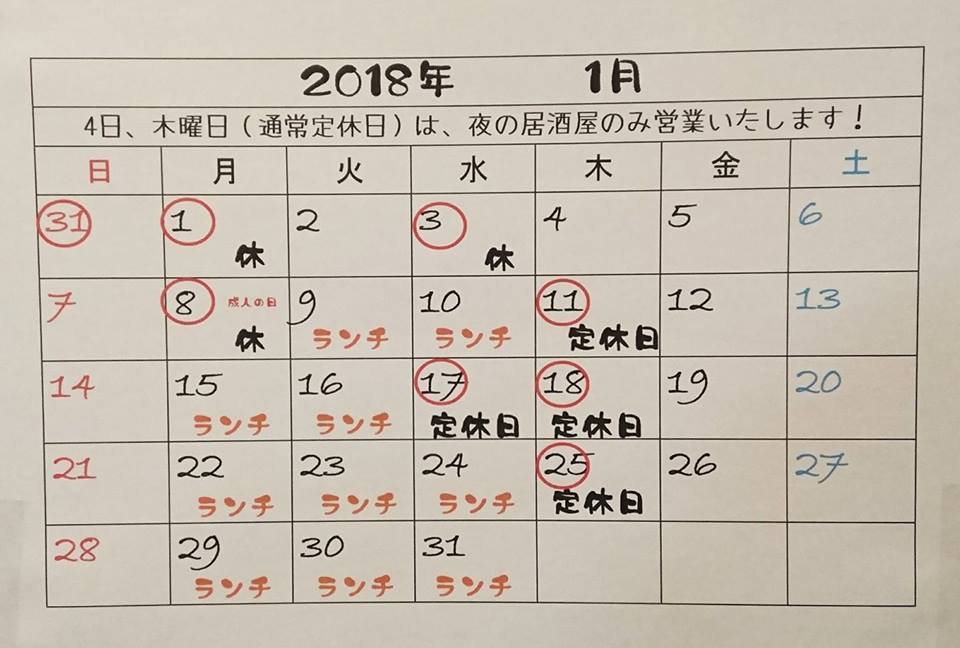 2018年 1月
4日、木曜日（通常定休日）は、夜の居酒屋のみ営業いたします！
日 月 火 水 木 金 土
31 1 2 3 4 5 6
休 休
7 8 成人の日 9 10 11 12 13
休 ランチ ランチ 定休日
14 15 16 17 18 19 20
ランチ ランチ 定休日 定休日
21 22 23 24 25 26 27
ランチ ランチ ランチ 定休日
28 29 30 31
ランチ ランチ ランチ